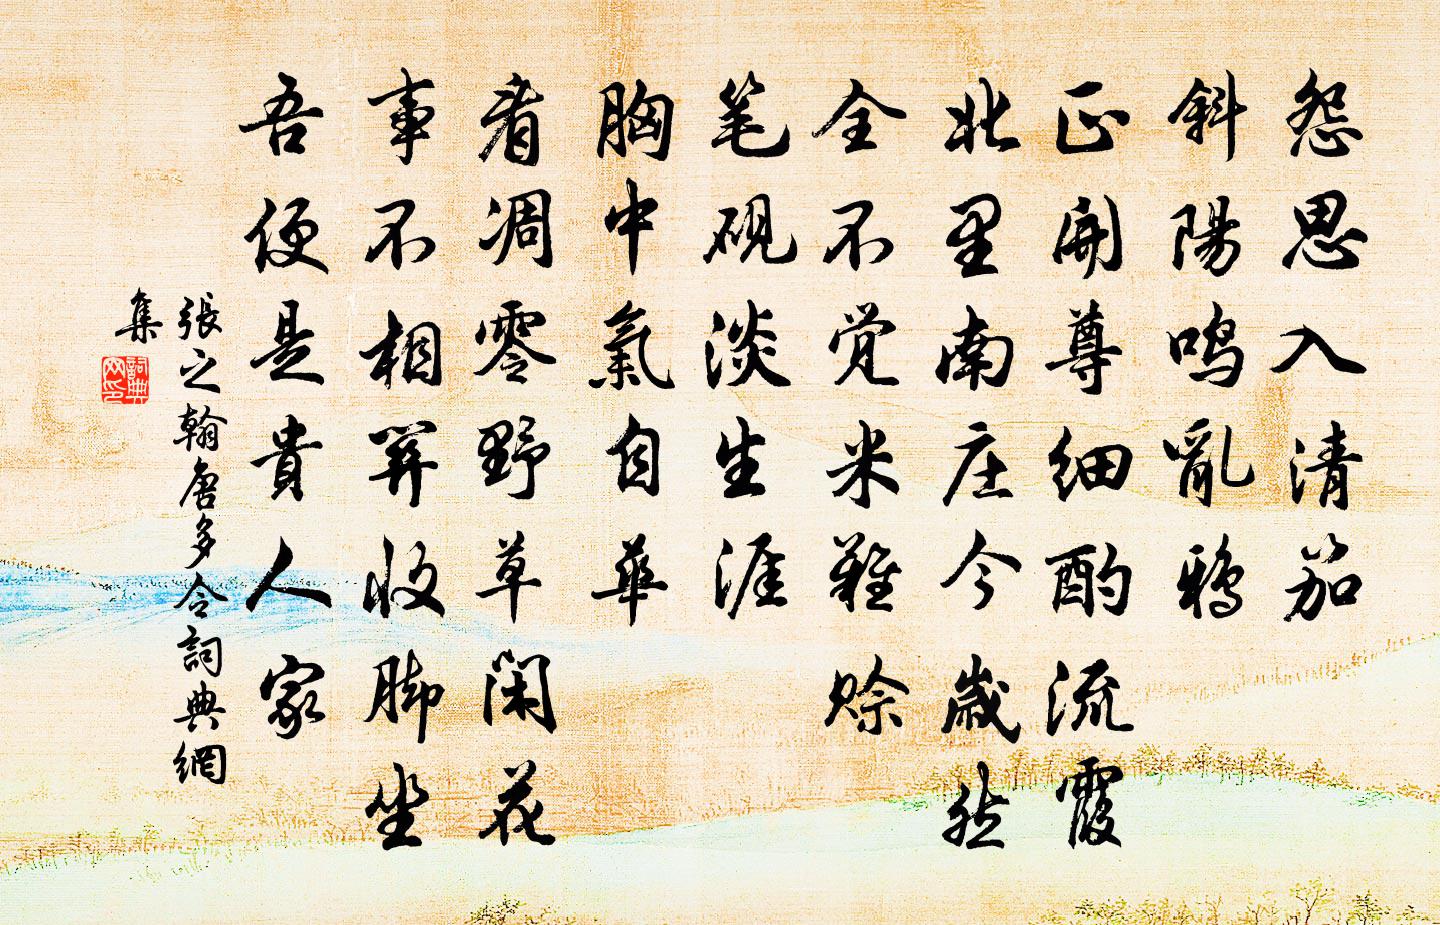 怨思入清笳
斜陽鳴亂鴉
正開尊細酌流霞
北里南庄今歲熟
全不觉米難賒
笔硯淡生涯
胸中氣自華
看凋零野草闲花
事不相關收脚坐
吾便是貴人家
張之翰唐多令詞典網
集
詞典
网印